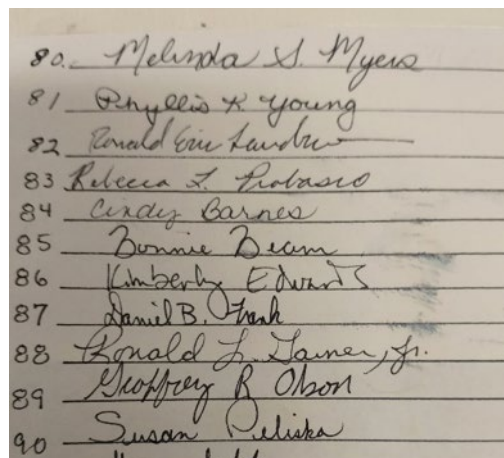 80. Melinda S. Myers
81 Phyllis K Young
82 Ronald Eric
83 Rebecca L. Probasco
84 Cindy Barnes
85 Bonnie Beam
86 Kimberly Edwards
87 Daniel B. Frank
88 Ronald L. Garner, Jr.
89 Geoffrey R Olson
90 Susan Peliska